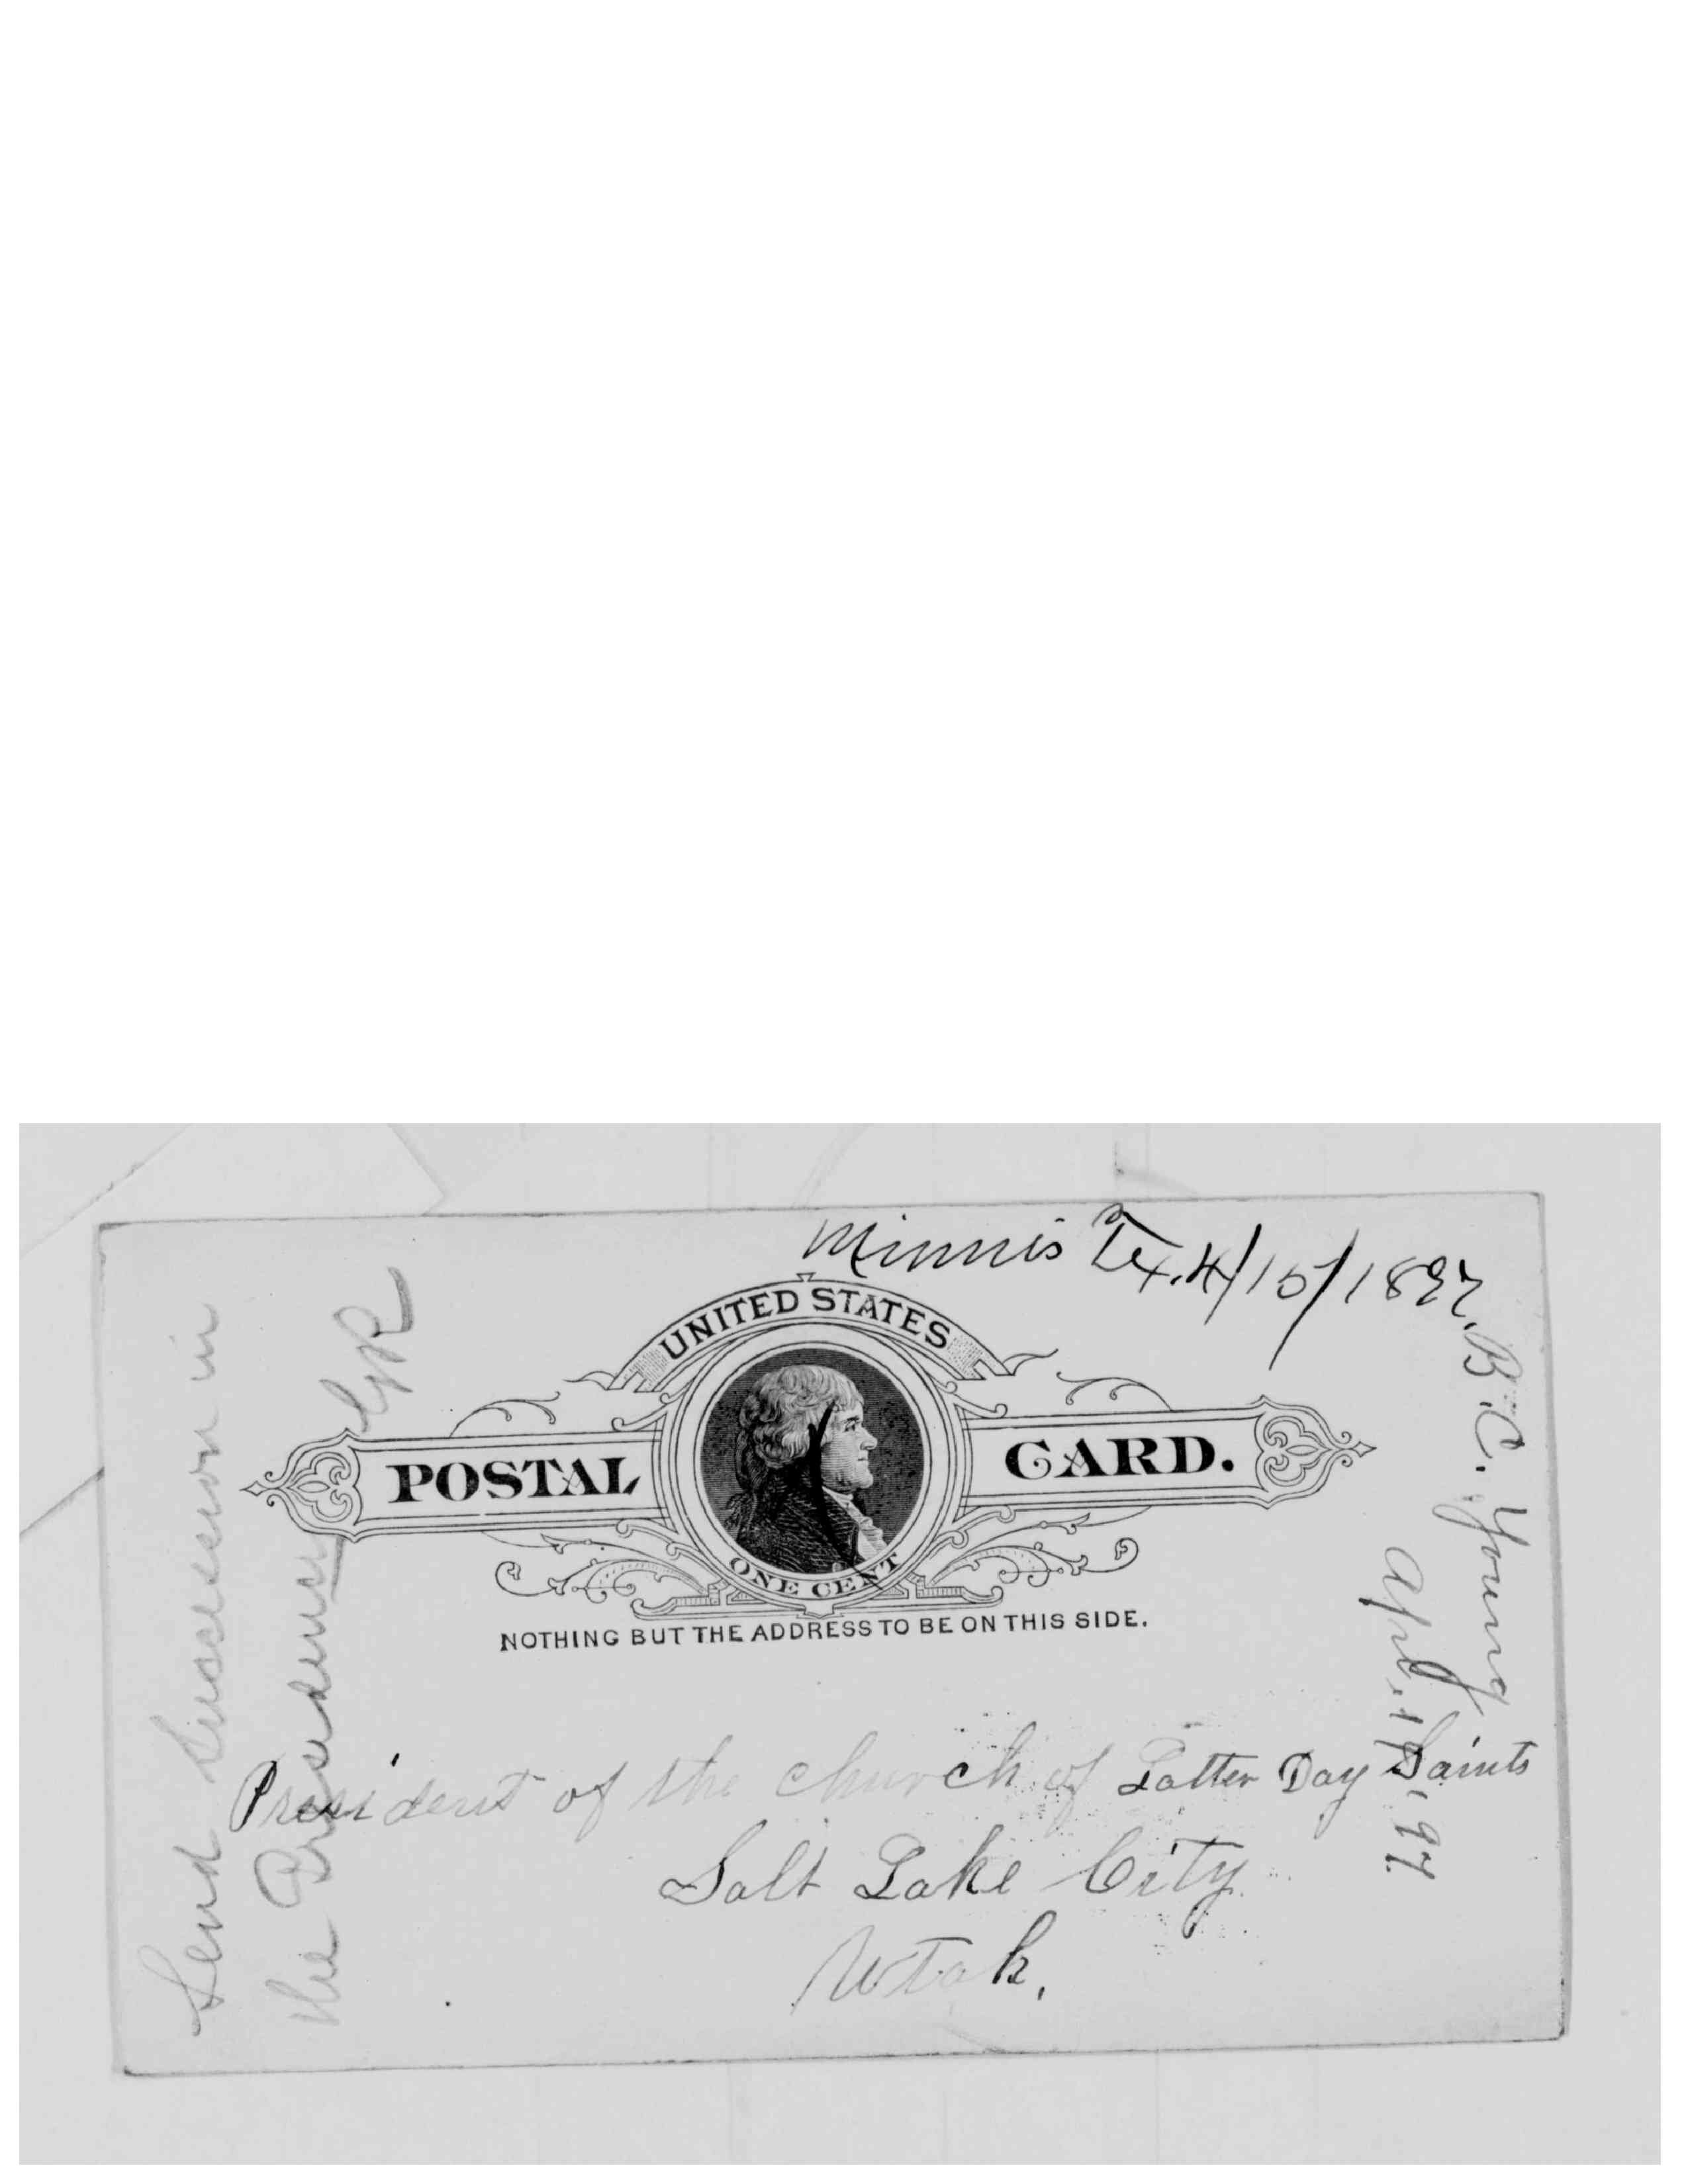 Minnis Tex. 4/15/1897.
UNITED STATES
POSTAL CARD.
ONE CENT
NOTHING BUT THE ADDRESS TO BE ON THIS SIDE.
President of the church of Latter Day Saints
Salt Lake City
Utah.
Send Succession in
the Presidency
GR
B. C. Young
Apl. 15, '97.